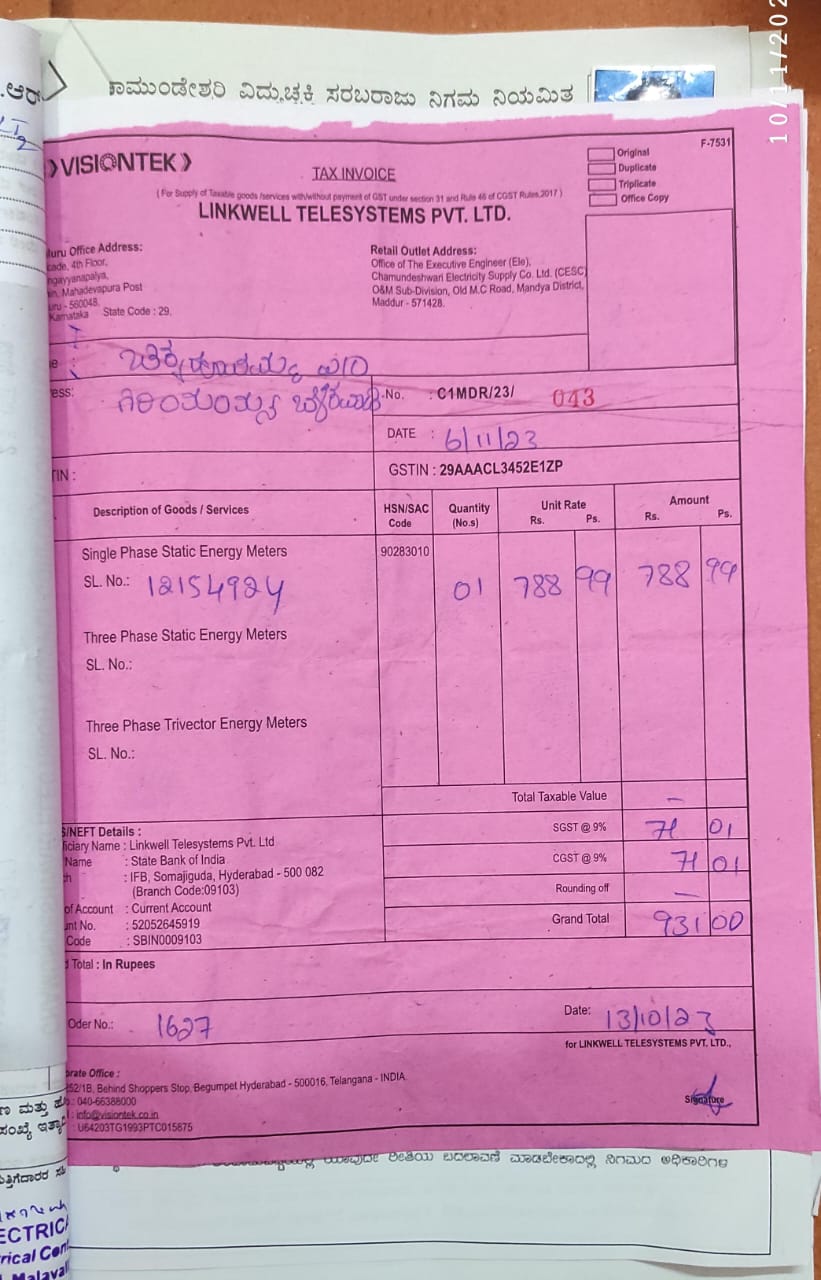 10/11/202
ಕಾಮುಂಡೇಶ್ವರಿ ವಿದ್ಯುಚ್ಛಕ್ತಿ ಸರಬರಾಜು ನಿಗಮ ನಿಯಮಿತ
.ಆರ್
F-7531
VISIONTEK
TAX INVOICE
Original
Duplicate
Triplicate
Office Copy
( For Supply of Taxable goods /services with/without payment of GST under section 31 and Rule 46 of CGST Rules,2017 )
LINKWELL TELESYSTEMS PVT. LTD.
luru Office Address:
cade, 4th Floor,
ngayyanapalya,
n, Mahadevapura Post
uru - 560048,
Karnataka State Code : 29,
Retail Outlet Address:
Office of The Executive Engineer (Ele),
Chamundeshwari Electricity Supply Co. Ltd. (CESC)
O&M Sub-Division, Old M.C Road, Mandya District,
Maddur - 571428.
e :
ess:
No. : C1MDR/23/ 043
DATE : 6/11/23
TIN :
GSTIN : 29AAACL3452E1ZP
Description of Goods / Services HSN/SAC Code Quantity (No.s) Unit Rate Rs. Ps. Amount Rs. Ps.
Single Phase Static Energy Meters 90283010
SL. No.: 12154924 01 788 99 788 99
Three Phase Static Energy Meters
SL. No.:
Three Phase Trivector Energy Meters
SL. No.:
Total Taxable Value —
SGST @ 9% 71 01
CGST @ 9% 71 01
Rounding off —
Grand Total 931 00
S/NEFT Details :
ficiary Name : Linkwell Telesystems Pvt. Ltd
Name : State Bank of India
h : IFB, Somajiguda, Hyderabad - 500 082
(Branch Code:09103)
of Account : Current Account
unt No. : 52052645919
Code : SBIN0009103
d Total : In Rupees
Oder No.: 1627
Date: 13/10/23
for LINKWELL TELESYSTEMS PVT. LTD.,
orate Office :
252/1B, Behind Shoppers Stop, Begumpet Hyderabad - 500016, Telangana - INDIA.
: 040-66388000
: info@visiontek.co.in
: U64203TG1993PTC015875
Signature
ಯಾವುದೇ ರೀತಿಯ ಬದಲಾವಣೆ ಮಾಡಬೇಕಾದಲ್ಲಿ ನಿಗಮದ ಅಧಿಕಾರಿಗಳ
ಣ ಮತ್ತು
ಸಂಖ್ಯೆ
ತ್ತಿಗೆದಾರರ
ECTRICA
rical Con
Malaval